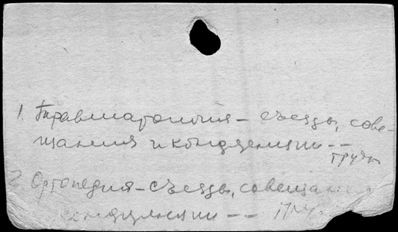 1. Травматология – съезды, сове-
щания и конференции –– труды
2. Ортопедия – съезды, совещания
конференции ––